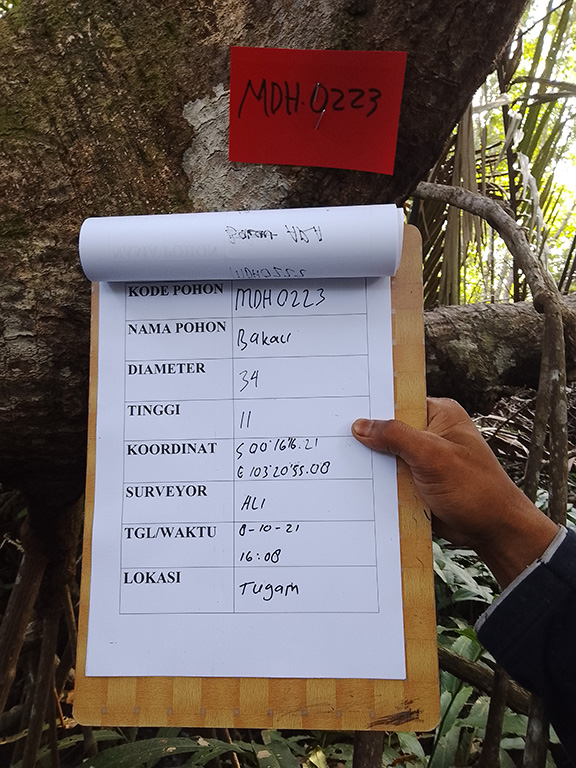 MDH.0223
KODE POHON MDH0223
NAMA POHON Bakau
DIAMETER 34
TINGGI 11
KOORDINAT S 00°16'16.21
E 103°20'55.08
SURVEYOR ALI
TGL/WAKTU 8-10-21
16:08
LOKASI Tugam